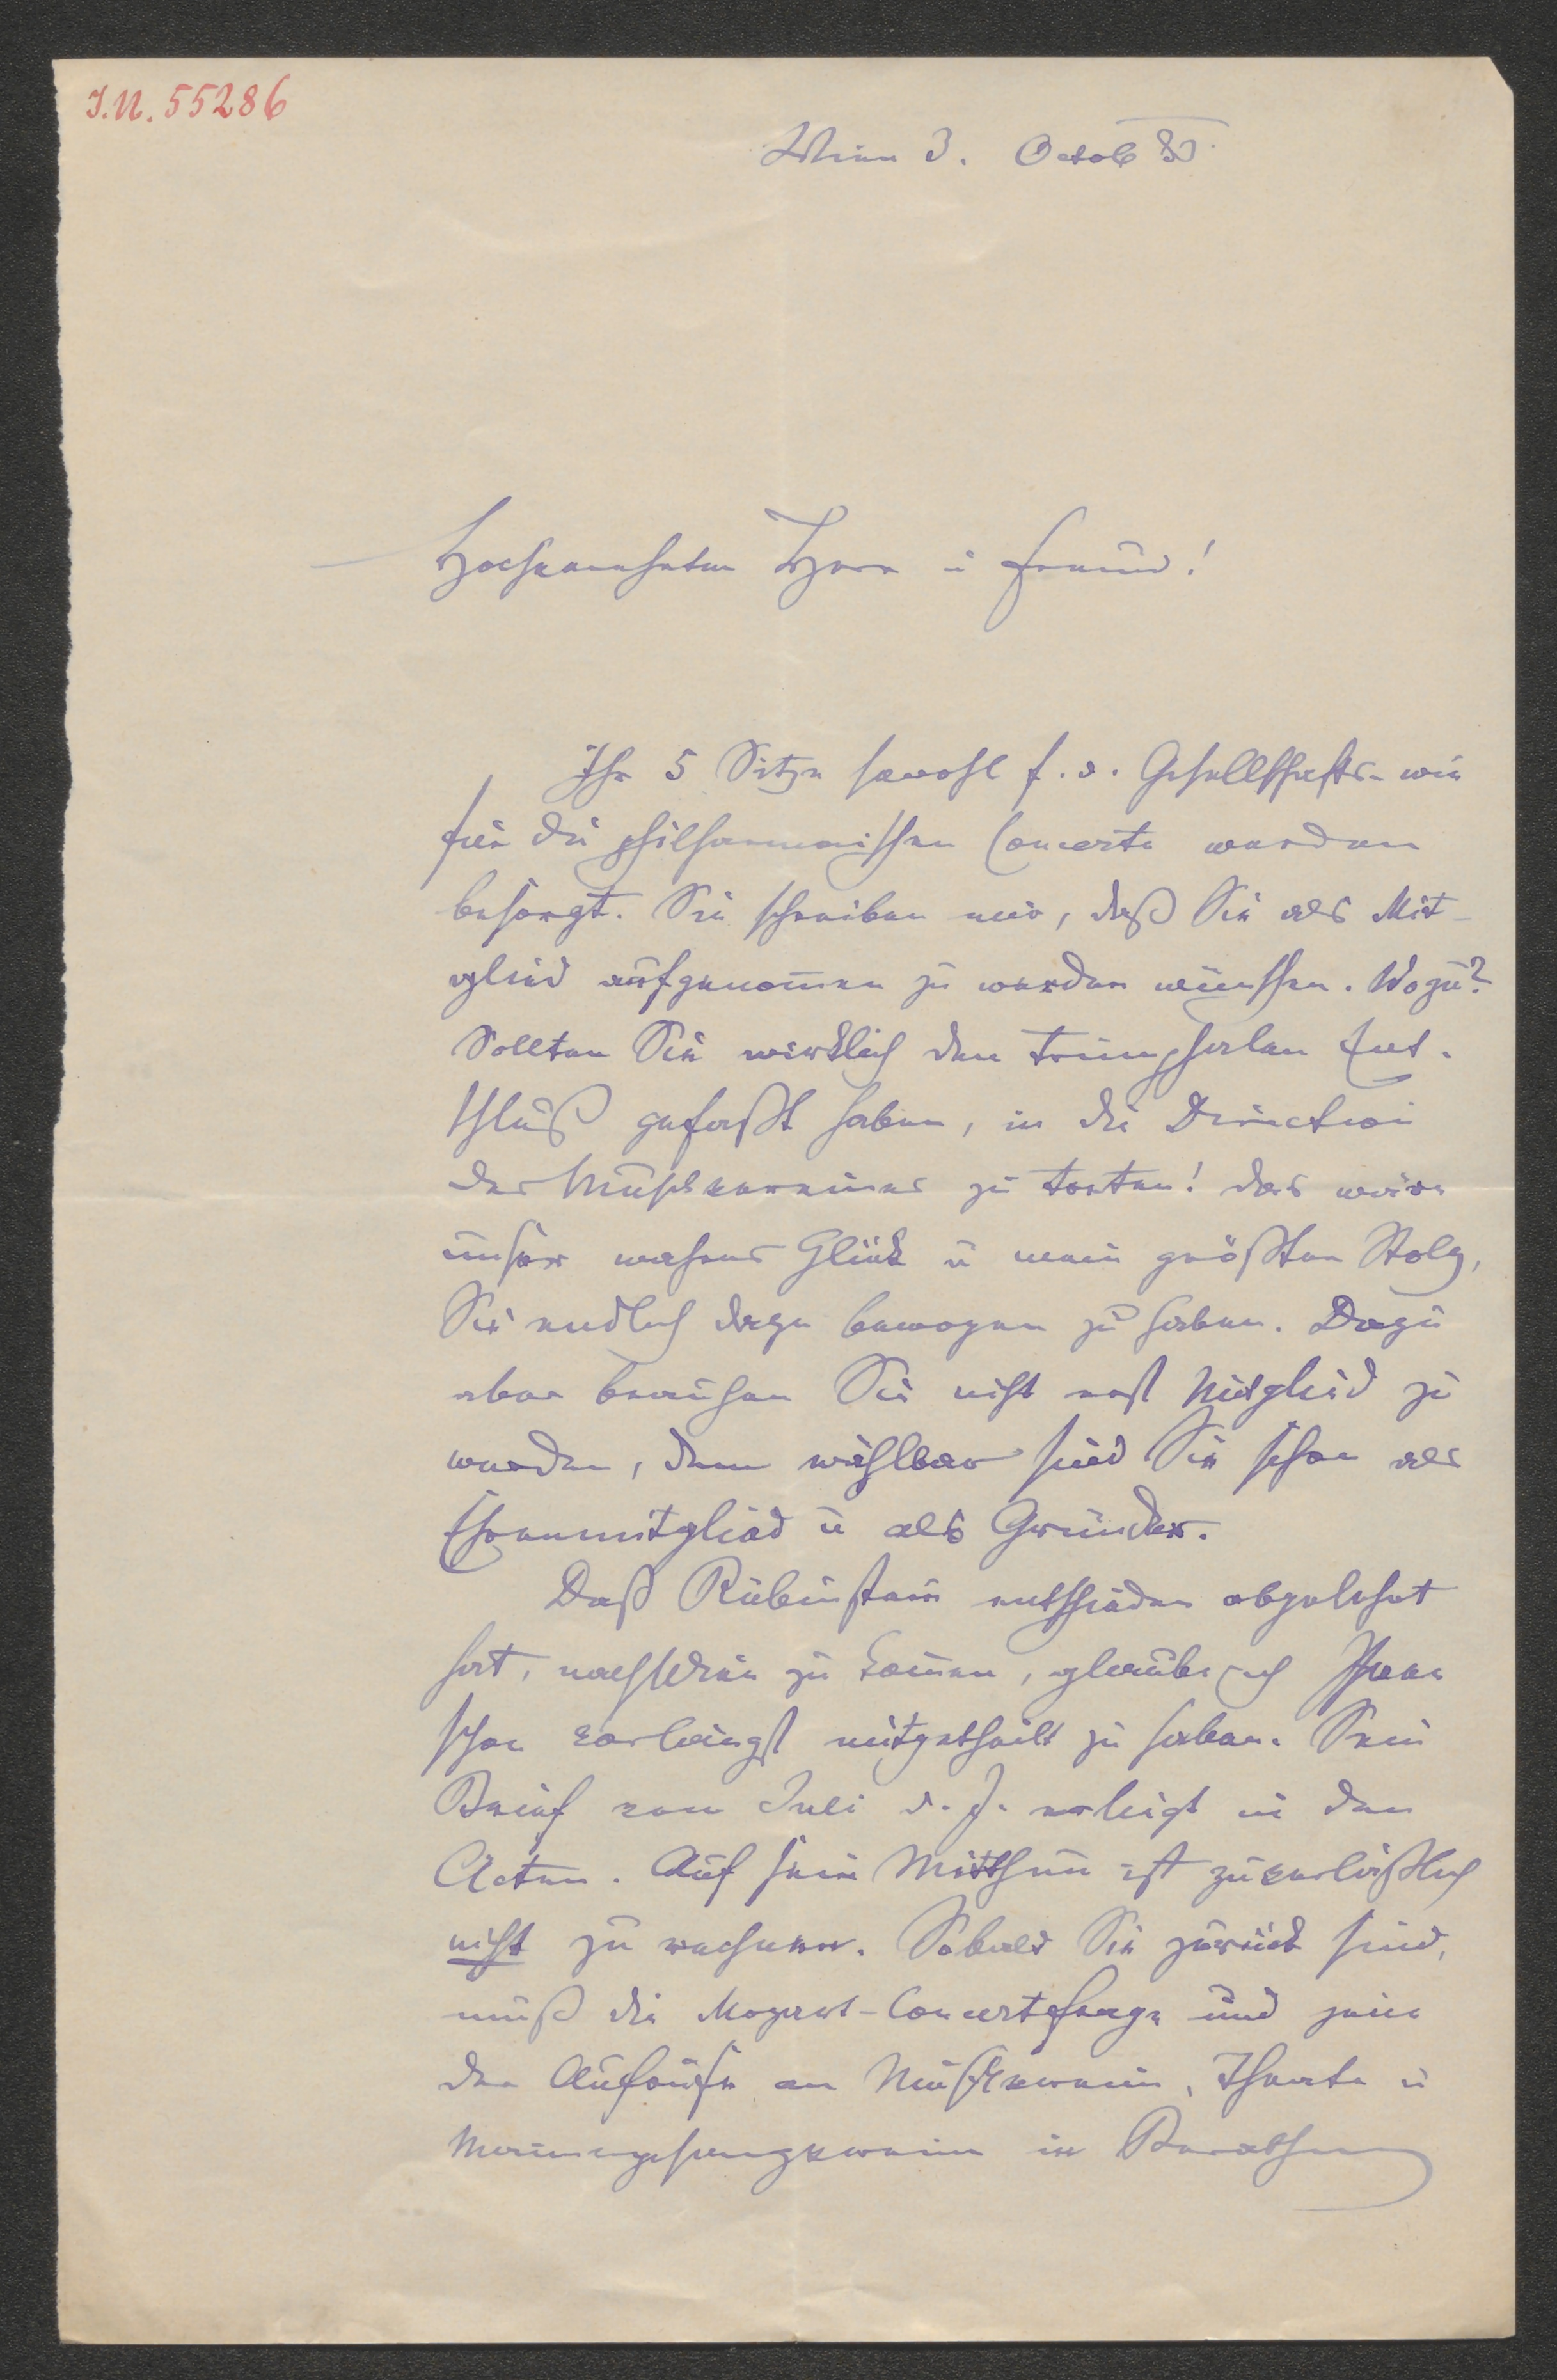 I.N. 55286
Wien 3. Octob 80.
Hochverehrter Herr u Freund!
Ihre 5 Sitze sowohl f. d. Gesellschafts- wie
für die philharmonischen Concerte werden
besorgt. Sie schreiben mir, daß Sie als Mit-
glied aufgenom̄en zu werden wünschen. Wozu?
Sollten Sie wirklich den triumphalen Ent-
schluß gefaßt haben, in die Direction
des Musikvereines zu treten! das wäre
unser wahres Glück u mein größter Stolz,
Sie endlich dazu bewogen zu haben. Dazu
aber brauchen Sie nicht erst Mitglied zu
werden, denn wählbar sind Sie schon als
Ehrenmitglied u als Gründer.
Daß Rubinstein entschieden abgelehnt
hat, nach Wien zu kom̄en, glaube ich Ihnen
schon vorlängst mitgetheilt zu haben. Sein
Brief vom Juli d. J. erliegt in den
Acten. Auf sein Mitthun ist zuverläßlich
nicht zu rechnen. Sobald Sie zurück sind,
muß die Mozart-Concertfrage und jene
der Aufrufe an Musikverein, Theater u
Männergesangverein in Berathung